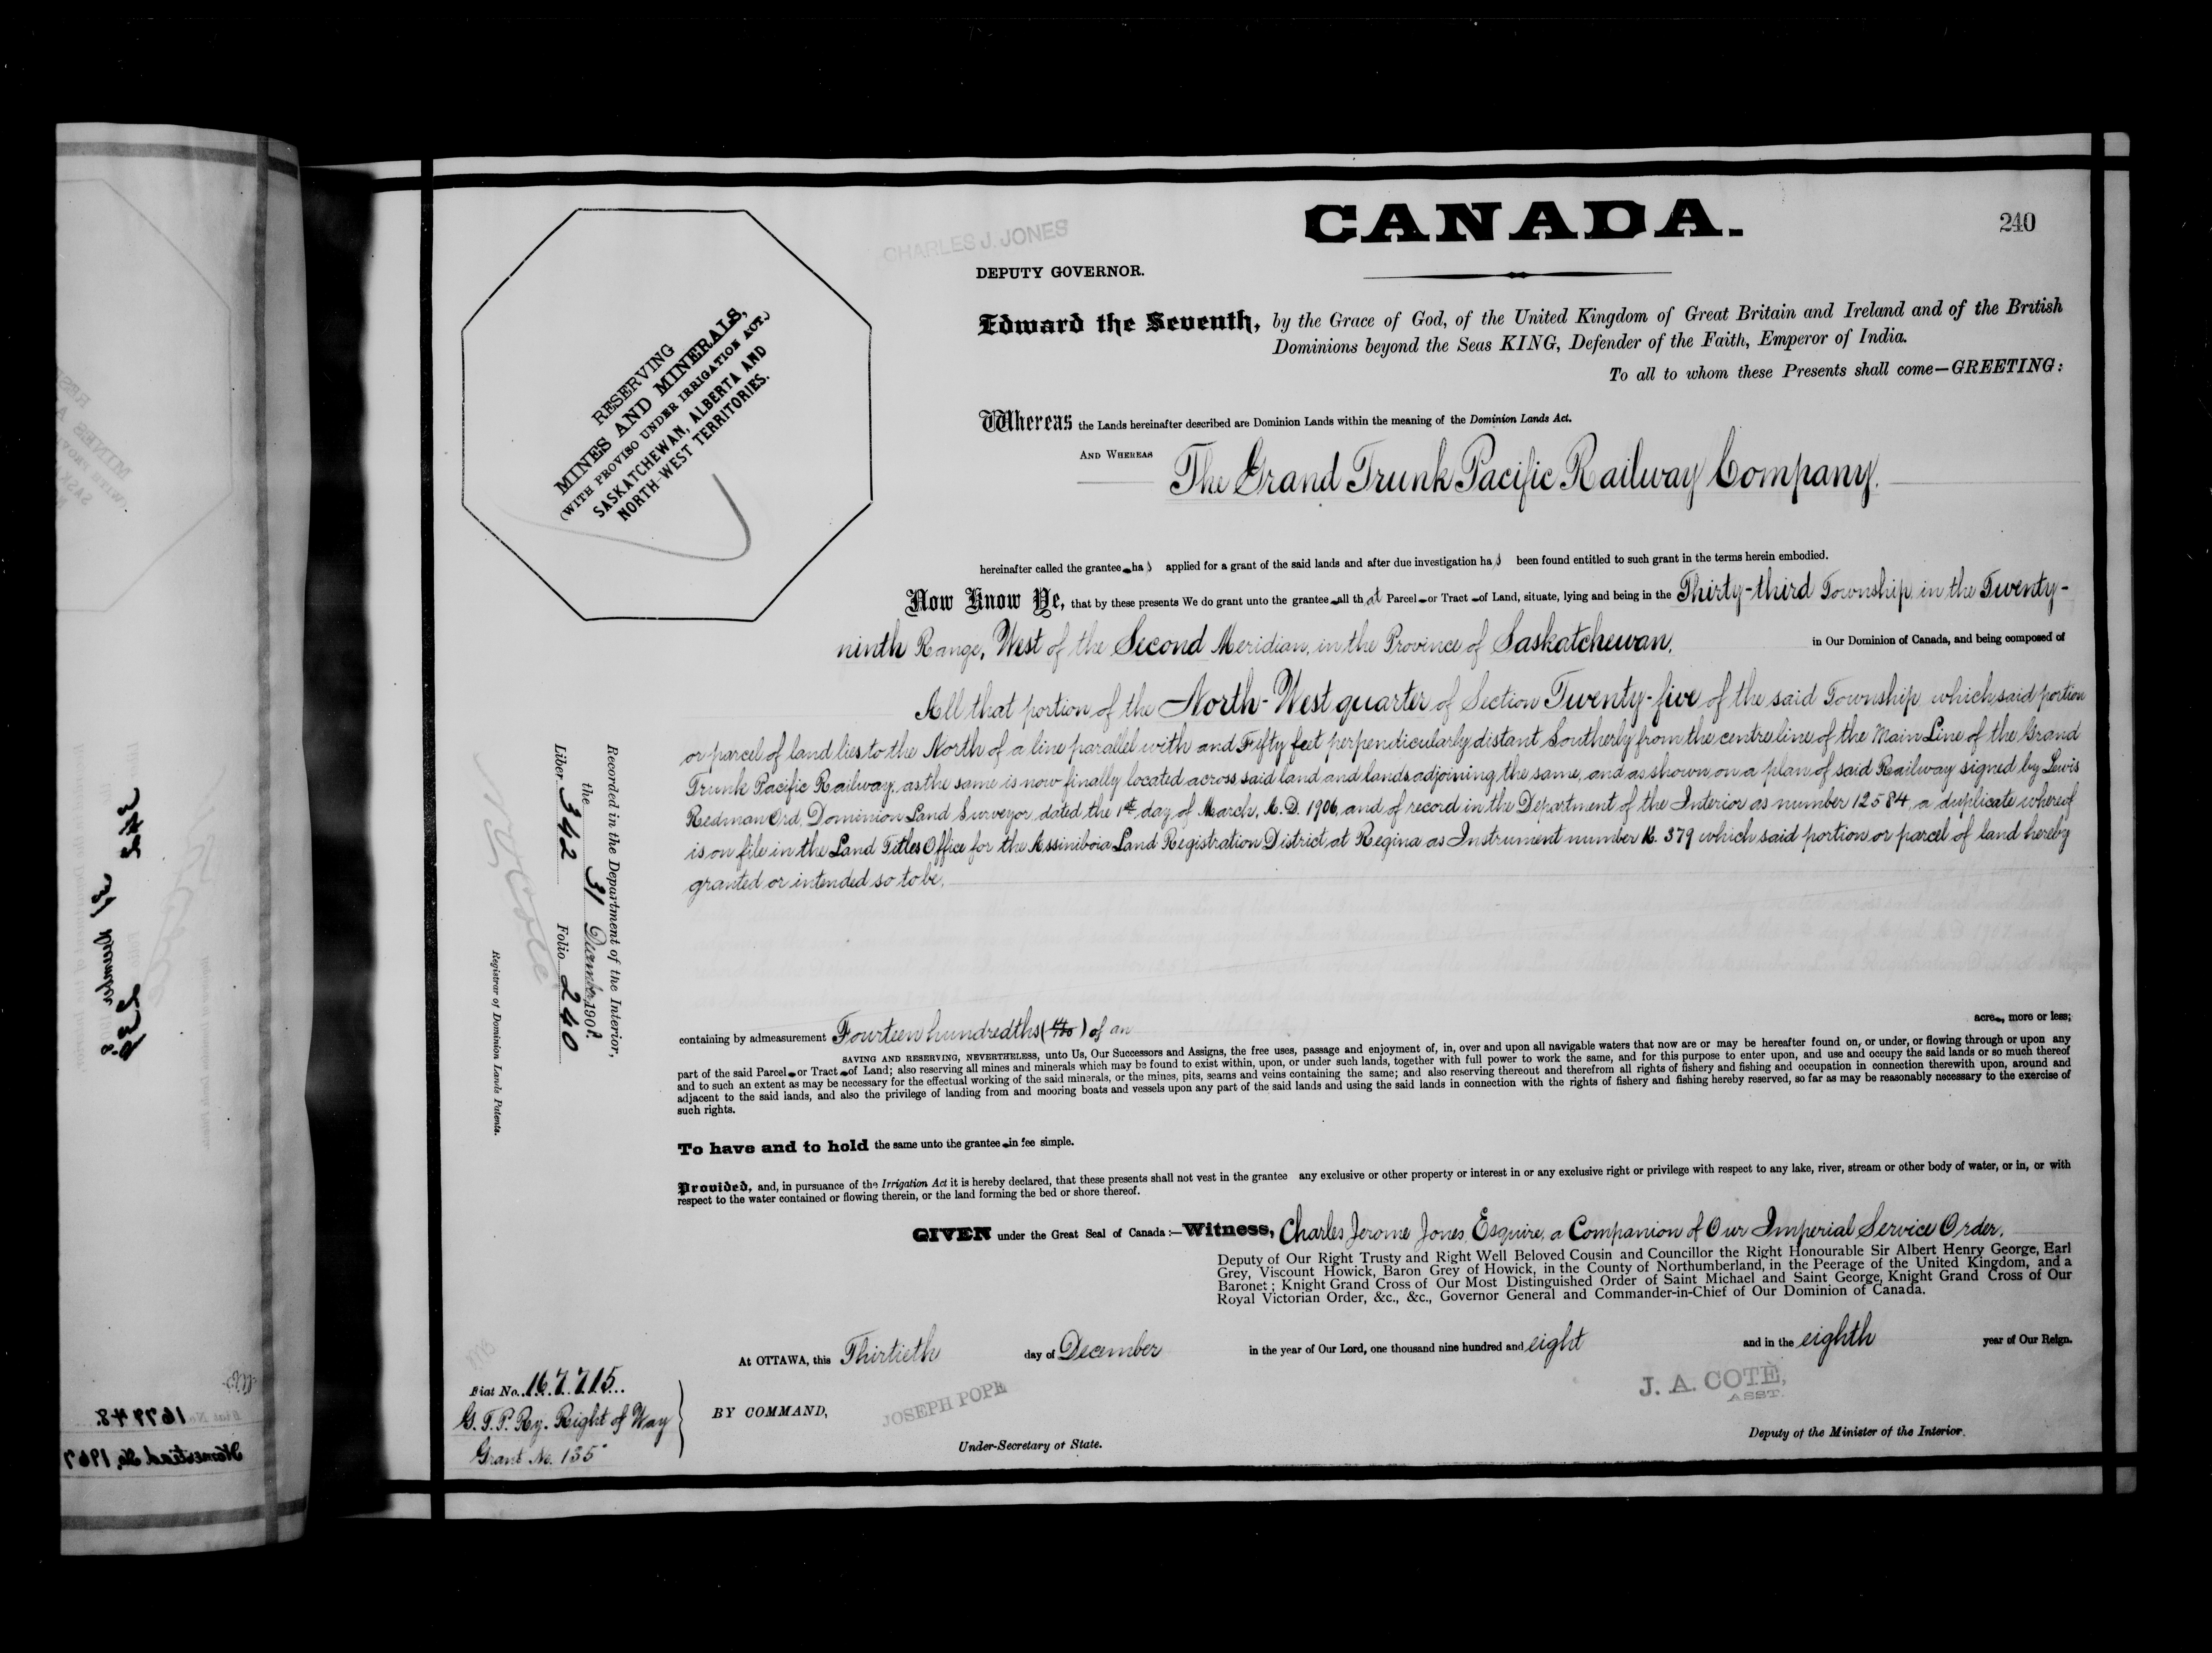 CANADA.
240
CHARLES J. JONES
DEPUTY GOVERNOR.
RESERVING
MINES AND MINERALS,
(WITH PROVISO UNDER IRRIGATION ACT.)
SASKATCHEWAN, ALBERTA AND
NORTH-WEST TERRITORIES.
Edward the Seventh, by the Grace of God, of the United Kingdom of Great Britain and Ireland and of the British
Dominions beyond the Seas KING, Defender of the Faith, Emperor of India.
To all to whom these Presents shall come—GREETING:
Whereas the Lands hereinafter described are Dominion Lands within the meaning of the Dominion Lands Act.
AND WHEREAS The Grand Trunk Pacific Railway Company.
hereinafter called the grantee has applied for a grant of the said lands and after due investigation has been found entitled to such grant in the terms herein embodied.
Now Know Ye, that by these presents We do grant unto the grantee all that Parcel or Tract of Land, situate, lying and being in the Thirty-third Township, in the Twenty-
ninth Range, West of the Second Meridian, in the Province of Saskatchewan, in Our Dominion of Canada, and being composed of
All that portion of the North-West quarter of Section Twenty-five of the said Township, which said portion
or parcel of land lies to the North of a line parallel with and Fifty feet perpendicularly distant Southerly from the centre line of the Main Line of the Grand
Trunk Pacific Railway, as the same is now finally located across said land and lands adjoining the same, and as shown on a plan of said Railway signed by Lewis
Redman Ord, Dominion Land Surveyor, dated the 1st day of March, A.D. 1906, and of record in the Department of the Interior as number 12584, a duplicate whereof
is on file in the Land Titles Office for the Assiniboia Land Registration District at Regina as Instrument number K. 379 which said portion or parcel of land hereby
granted or intended so to be,
containing by admeasurement Fourteen hundredths (14/100) of an acre, more or less;
SAVING AND RESERVING, NEVERTHELESS, unto Us, Our Successors and Assigns, the free uses, passage and enjoyment of, in, over and upon all navigable waters that now are or may be hereafter found on, or under, or flowing through or upon any
part of the said Parcel or Tract of Land; also reserving all mines and minerals which may be found to exist within, upon, or under such lands, together with full power to work the same, and for this purpose to enter upon, and use and occupy the said lands or so much thereof
and to such an extent as may be necessary for the effectual working of the said minerals, or the mines, pits, seams and veins containing the same; and also reserving thereout and therefrom all rights of fishery and fishing and occupation in connection therewith upon, around and
adjacent to the said lands, and also the privilege of landing from and mooring boats and vessels upon any part of the said lands and using the said lands in connection with the rights of fishery and fishing hereby reserved, so far as may be reasonably necessary to the exercise of
such rights.
To have and to hold the same unto the grantee in fee simple.
Provided, and, in pursuance of the Irrigation Act it is hereby declared, that these presents shall not vest in the grantee any exclusive or other property or interest in or any exclusive right or privilege with respect to any lake, river, stream or other body of water, or in, or with
respect to the water contained or flowing therein, or the land forming the bed or shore thereof.
GIVEN under the Great Seal of Canada:—Witness, Charles Jerome Jones, Esquire, a Companion of Our Imperial Service Order,
Deputy of Our Right Trusty and Right Well Beloved Cousin and Councillor the Right Honourable Sir Albert Henry George, Earl
Grey, Viscount Howick, Baron Grey of Howick, in the County of Northumberland, in the Peerage of the United Kingdom, and a
Baronet; Knight Grand Cross of Our Most Distinguished Order of Saint Michael and Saint George, Knight Grand Cross of Our
Royal Victorian Order, &c., &c., Governor General and Commander-in-Chief of Our Dominion of Canada.
At OTTAWA, this Thirtieth day of December in the year of Our Lord, one thousand nine hundred and eight and in the eighth year of Our Reign.
BY COMMAND,
JOSEPH POPE
Under-Secretary of State.
J. A. COTÉ,
ASST.
Deputy of the Minister of the Interior.
Recorded in the Department of the Interior,
the 31 December 1908.
Liber 342 Folio 240
N O Coté
Registrar of Dominion Lands Patents.
Fiat No. 167715
G. T. P. Ry. Right of Way
Grant No. 135